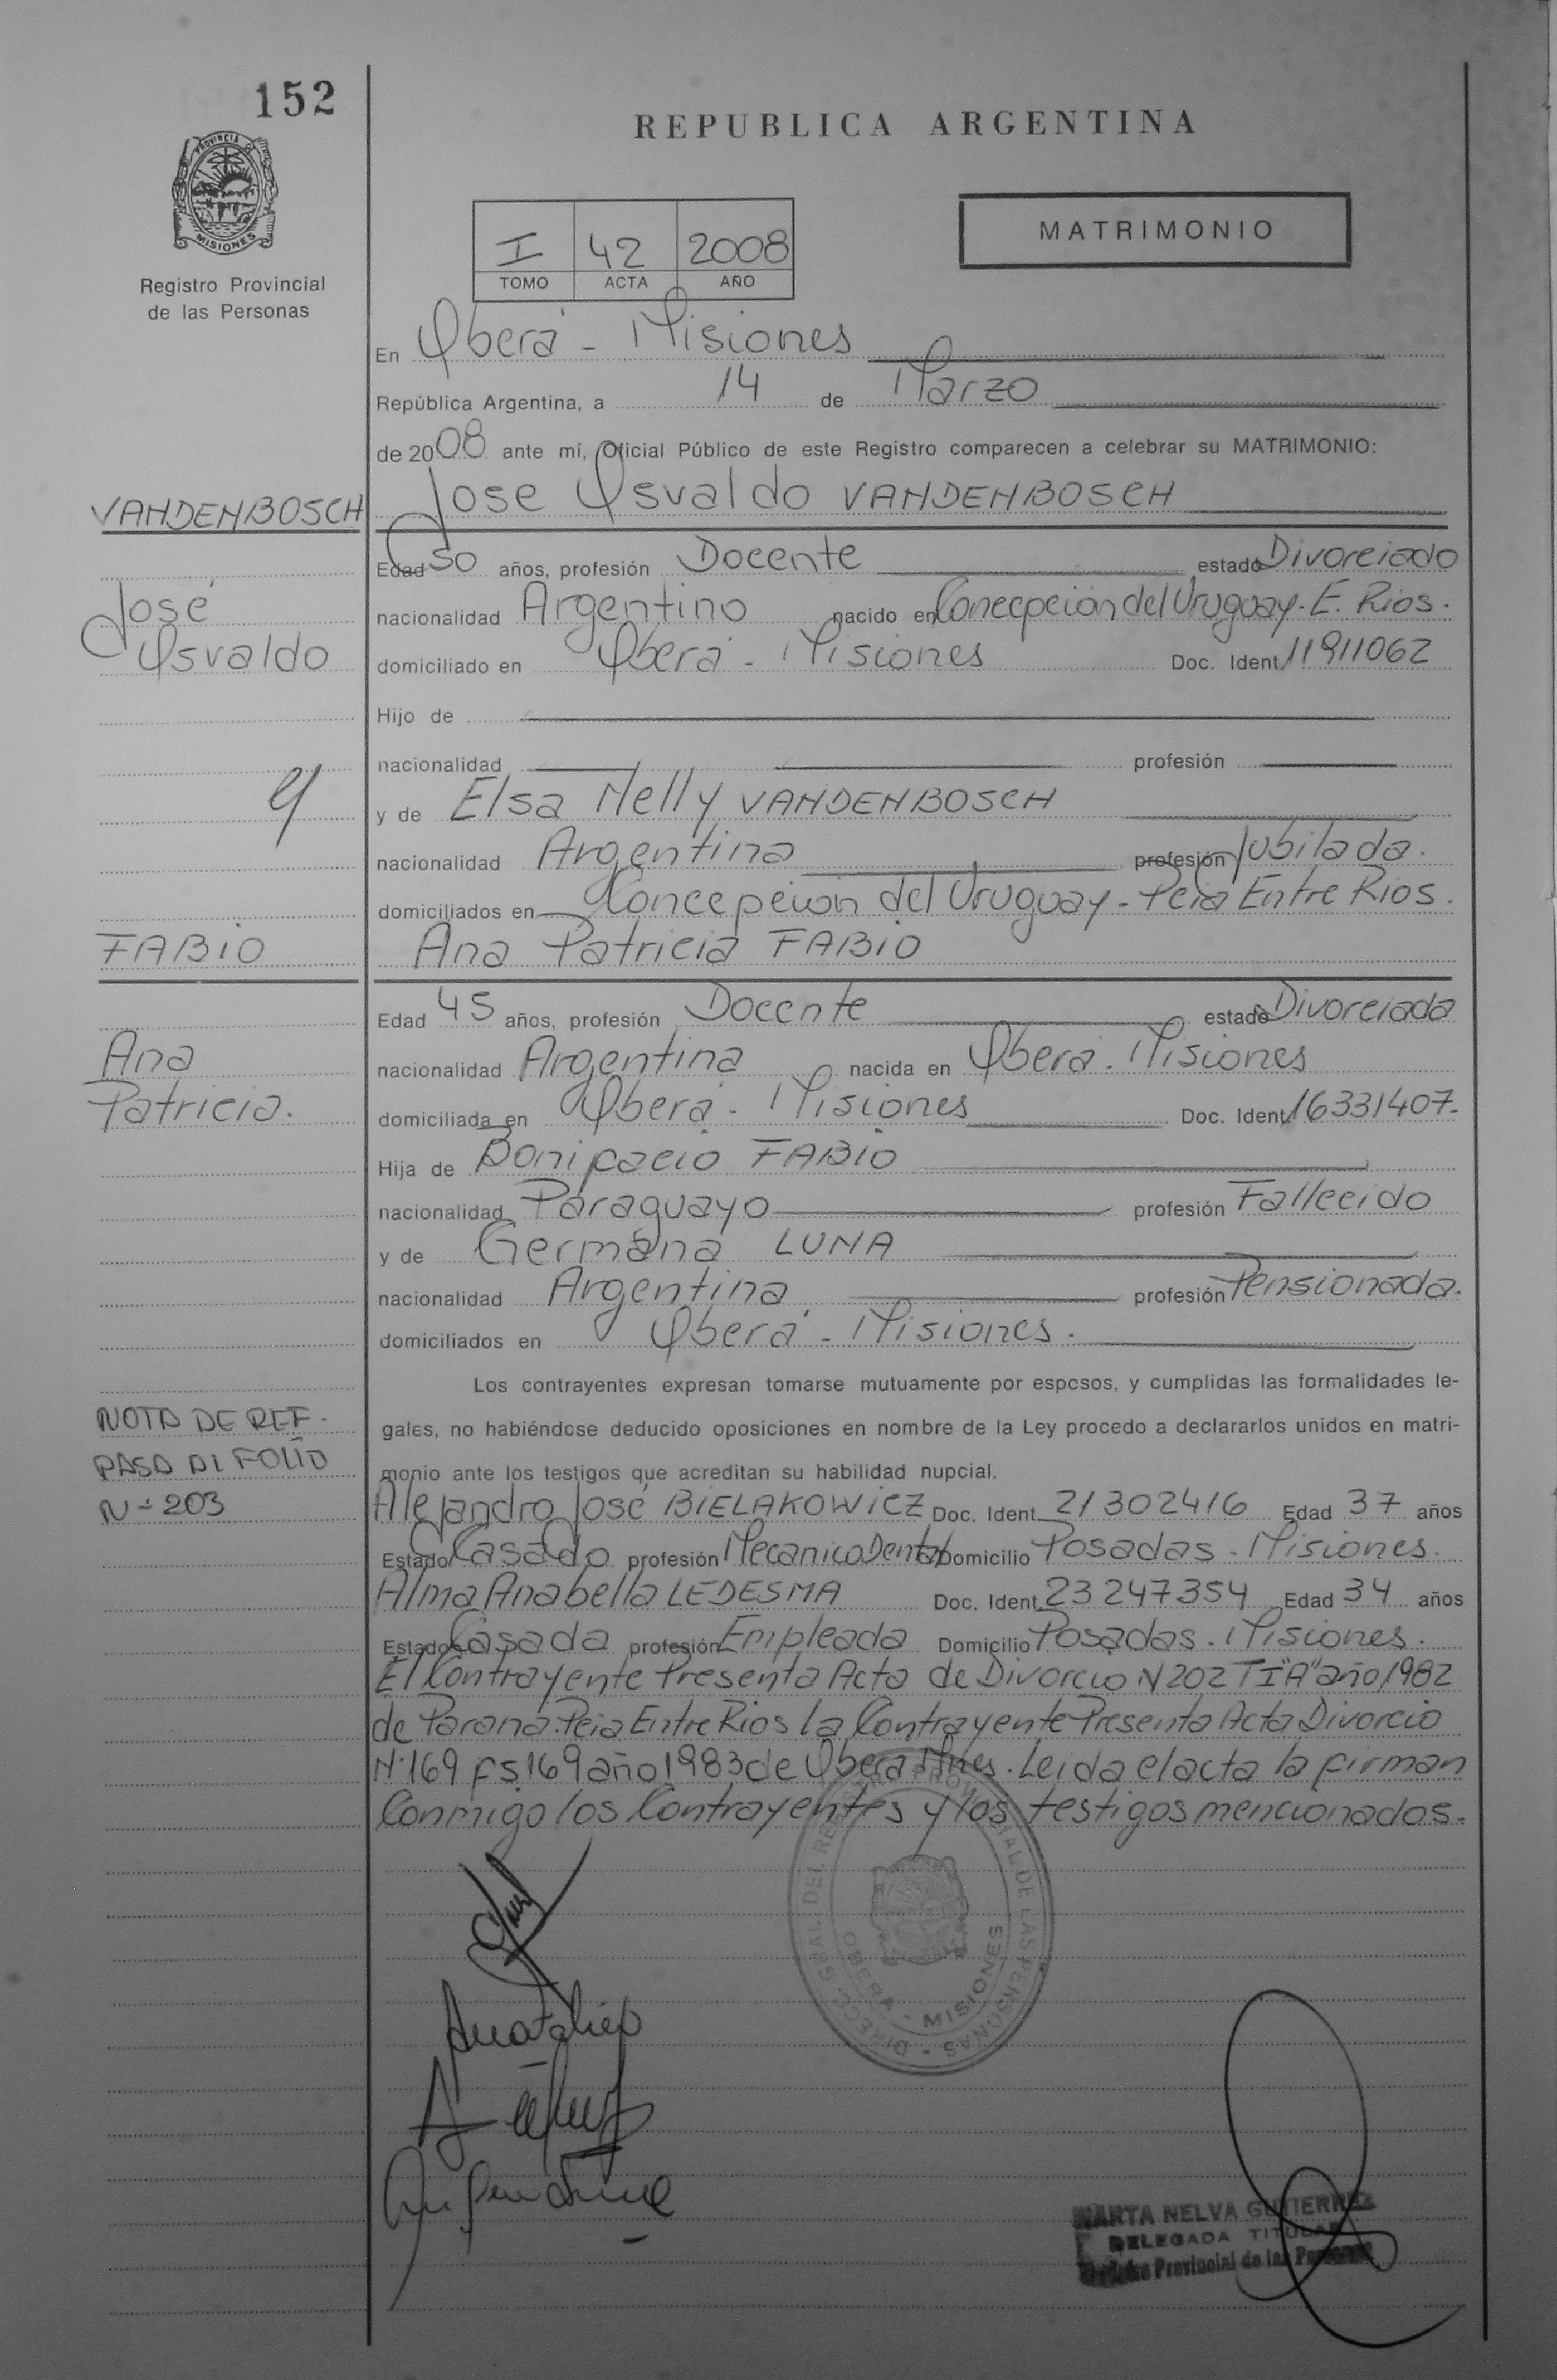 152
REPUBLICA ARGENTINA
PROVINCIA DE
MISIONES
Registro Provincial
de las Personas
I 42 2008
TOMO ACTA AÑO
MATRIMONIO
En Oberá - Misiones
República Argentina, a 14 de Marzo
de 2008 ante mi, Oficial Público de este Registro comparecen a celebrar su MATRIMONIO:
VANDENBOSCH
Jose Osvaldo VANDENBOSCH
Edad 50 años, profesión Docente estado Divorciado
José
nacionalidad Argentino nacido en Concepción del Uruguay. E. Rios.
Osvaldo
domiciliado en Oberá - Misiones Doc. Ident. 11911062
Hijo de
nacionalidad profesión
y
y de Elsa Nelly VANDENBOSCH
nacionalidad Argentina profesión Jubilada.
domiciliados en Concepción del Uruguay - Pcia Entre Rios.
FABIO
Ana Patricia FABIO
Edad 45 años, profesión Docente estado Divorciada
Ana
nacionalidad Argentina nacida en Oberá. Misiones
Patricia.
domiciliada en Oberá - Misiones Doc. Ident. 16331407-
Hija de Bonifacio FABIO
nacionalidad Paraguayo profesión Fallecido
y de Germana LUNA
nacionalidad Argentina profesión Pensionada.
domiciliados en Oberá - Misiones.
Los contrayentes expresan tomarse mutuamente por esposos, y cumplidas las formalidades le-
gales, no habiéndose deducido oposiciones en nombre de la Ley procedo a declararlos unidos en matri-
monio ante los testigos que acreditan su habilidad nupcial.
NOTA DE REF.
PASA AL FOLIO
N° 203
Alejandro José BIELAKOWICZ Doc. Ident. 21302416 Edad 37 años
Estado Casado profesión Mecanico Dental Domicilio Posadas - Misiones.
Alma Anabella LEDESMA Doc. Ident. 23247354 Edad 34 años
Estado Casada profesión Empleada Domicilio Posadas. Misiones.
El Contrayente Presenta Acta de Divorcio N 202 TI"A" año 1982
de Paraná. Pcia Entre Rios la Contrayente Presenta Acta Divorcio
N°169 fs.169 año 1983 de Oberá Mnes. Leida el acta la firman
Conmigo los Contrayentes y los testigos mencionados.
DIREC. GRAL. DEL REGISTRO PROVINCIAL DE LAS PERSONAS
OBERA - MISIONES
MARTA NELVA GUTIERREZ
DELEGADA TITULAR
Provincial de las Personas